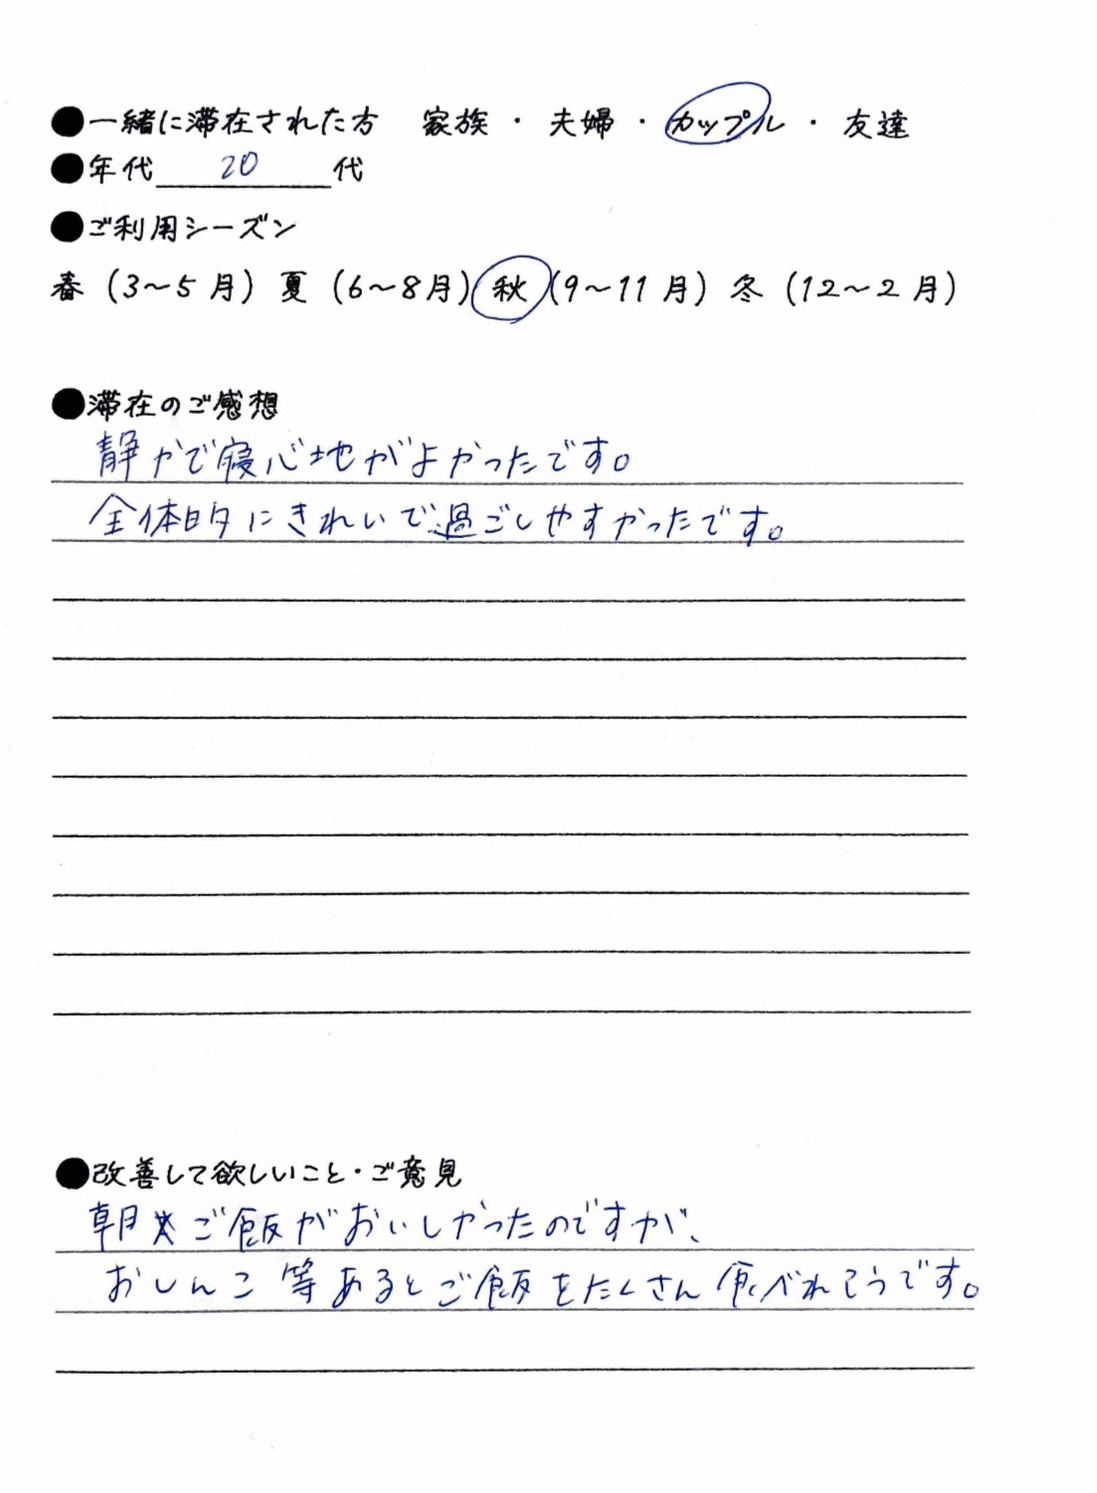 ●一緒に滞在された方 家族・夫婦・カップル・友達
●年代 20 代
●ご利用シーズン
春（3～5月）夏（6～8月）秋（9～11月）冬（12～2月）
●滞在のご感想
静かで寝心地がよかったです。
全体的にきれいで過ごしやすかったです。
●改善して欲しいこと・ご意見
朝ご飯がおいしかったのですが、
おしんこ等あるとご飯をたくさん食べれそうです。